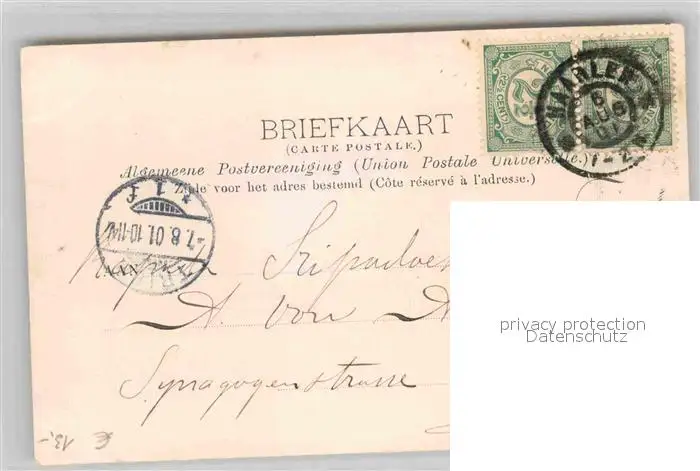 HAARLEM
6
AUG
01
7-8
BRIEFKAART
(CARTE POSTALE.)
Algemeene Postvereeniging (Union Postale Universelle.)
Zijde voor het adres bestemd (Côte réservé à l'adresse.)
* 1 f
-7.8.01.10-11
AAN
A. von
Synagogenstrasse
privacy protection
Datenschutz
13,- €